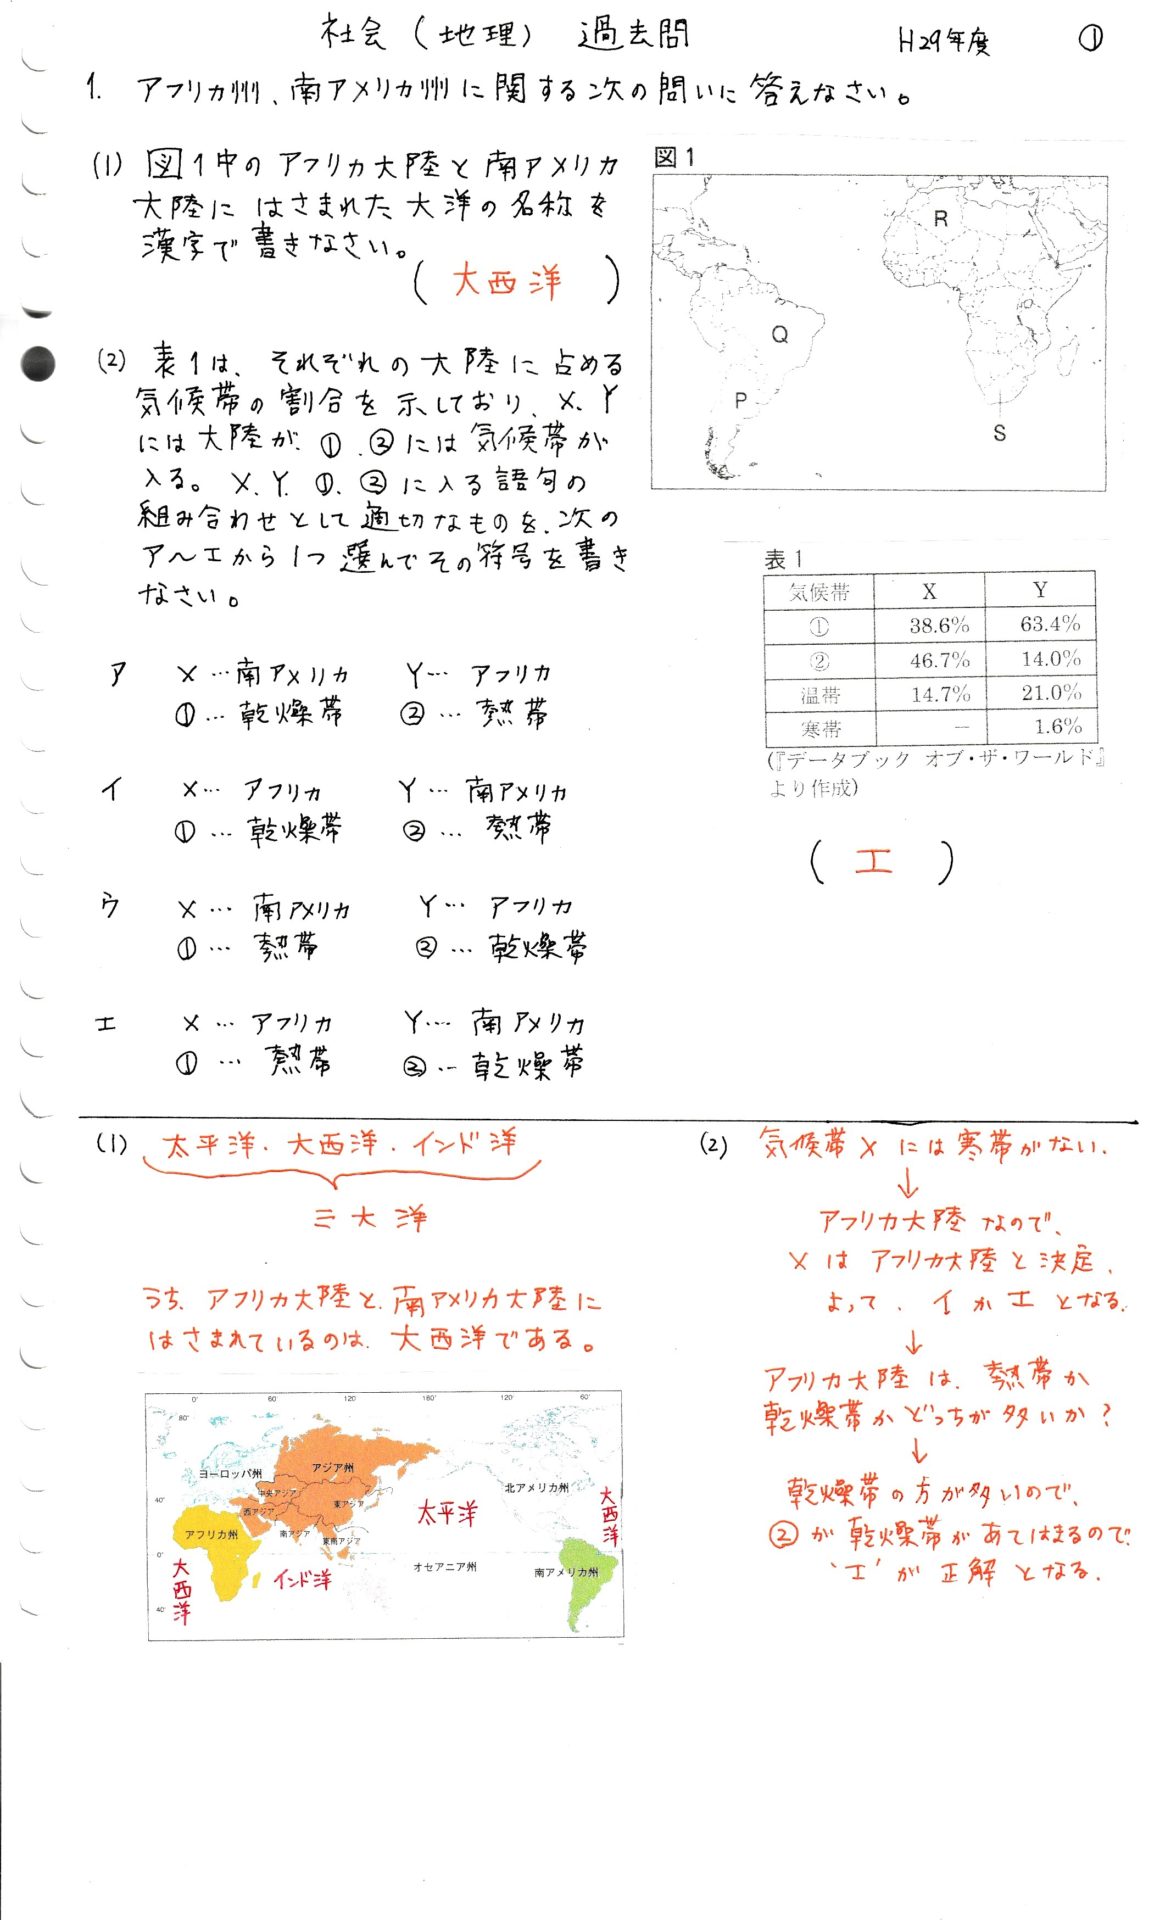 社会（地理） 過去問 H29年度 ①
1. アフリカ州、南アメリカ州に関する次の問いに答えなさい。
(1) 図1中のアフリカ大陸と南アメリカ
大陸にはさまれた大洋の名称を
漢字で書きなさい。
( 大西洋 )
図1
R
Q
P
S
(2) 表1は、それぞれの大陸に占める
気候帯の割合を示しており、X、Y
には大陸が、①、②には気候帯が
入る。X、Y、①、②に入る語句の
組み合わせとして適切なものを、次の
ア～エから1つ選んでその符号を書き
なさい。
表1
気候帯 X Y
① 38.6% 63.4%
② 46.7% 14.0%
温帯 14.7% 21.0%
寒帯 － 1.6%
(『データブック オブ・ザ・ワールド』
より作成)
( エ )
ア X…南アメリカ Y…アフリカ
①…乾燥帯 ②…熱帯
イ X…アフリカ Y…南アメリカ
①…乾燥帯 ②…熱帯
ウ X…南アメリカ Y…アフリカ
①…熱帯 ②…乾燥帯
エ X…アフリカ Y…南アメリカ
①…熱帯 ②…乾燥帯
(1) 太平洋、大西洋、インド洋
三大洋
うち、アフリカ大陸と、南アメリカ大陸に
はさまれているのは、大西洋である。
0° 60° 120° 180° 120° 60°
80°
40°
0°
40°
ヨーロッパ州
アジア州
中央アジア
西アジア
東アジア
南アジア
東南アジア
アフリカ州
北アメリカ州
オセアニア州
南アメリカ州
太平洋
大西洋
大西洋
インド洋
(2) 気候帯Xには寒帯がない、
↓
アフリカ大陸なので、
Xはアフリカ大陸と決定、
よって、イかエとなる。
↓
アフリカ大陸は、熱帯か
乾燥帯かどっちが多いか？
↓
乾燥帯の方が多いので、
②が乾燥帯があてはまるので、
'エ'が正解となる。